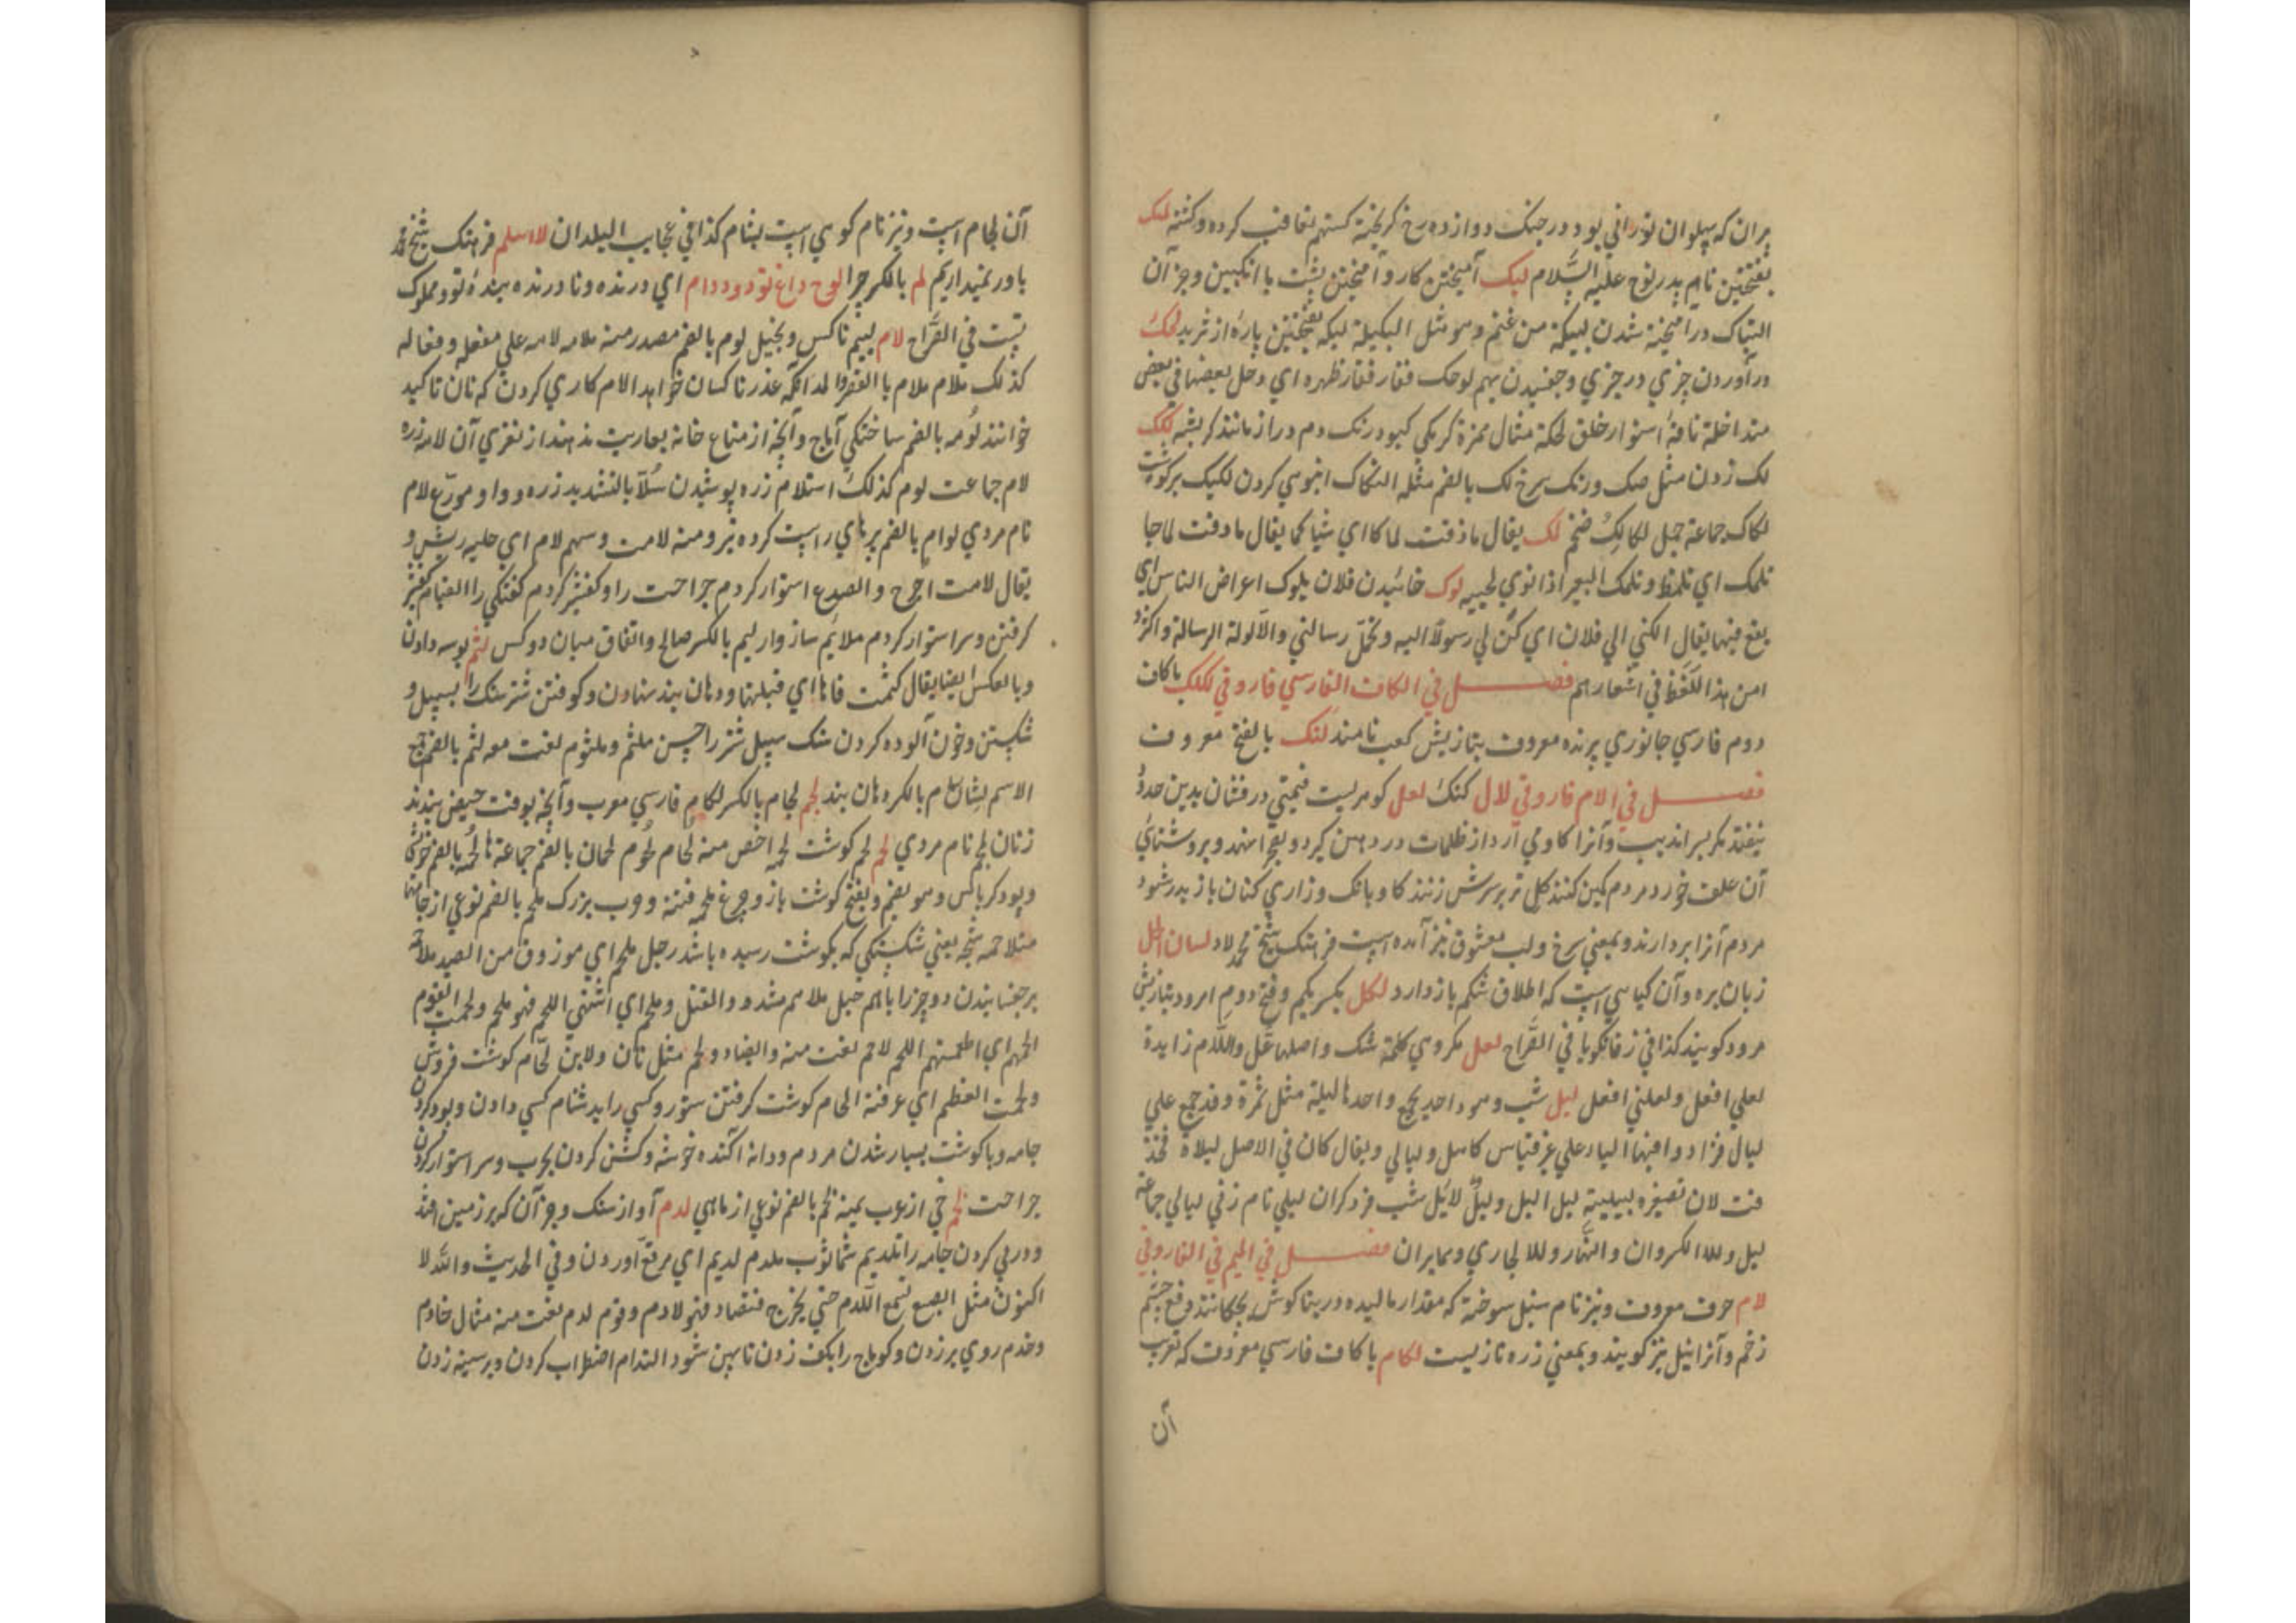 پیران که پهلوان تورانی بود در جنک دوازده رخ کریخته کستهم تعاقب کرده و کشته لمک
بفتحتین نام پدر نوح علیه السّلام لبک آمیختن کار و آمیختن پشت با انکبین و جز آن
التباک درآمیخته شدن لبیکه من غنم و هو مثل البکیلة لبکه بفتحتین پارهٔ از ثرید لحک
درآوردن چیزی در چیزی و چفسیدن بهم لوحک فقار فقار ظهره ای دخل بعضها فی بعض
متداخلة ناقهٔ استوار خلق لحکة مثال همزة کرمکی کبود رنک دم دراز مانند کربشه لکک
لک زدن مثل صک و رنک سرخ لک بالضم مثله التکاک انبوهی کردن لکیک پرکوشت
لکاک جماعة جمل لکالک ضخم لمک یقال ما ذقت لماکا ای شیا کما یقال ما ذقت لماجا
تلمک ای تلمظ و تلمک البعیر اذا لوی لحییه لوک خائیدن فلان یلوک اعراض الناس ای
یقع فیها یقال الکنی الی فلان ای کن لی رسولا الیه و تحمل رسالتی و الالوکة الرسالة و اکثروا
من هذا اللّفظ فی اشعارهم فصل فی الکاف الفارسی فاروقی لکلک با کاف
دوم فارسی جانوری پرنده معروف بتازیش کعب نامند لنک بالفتح معروف
فصل فی الام فاروقی لال کنک لعل کوهریست قیمتی درفشان بدین حدود
نیفتد مکر بسراندیب و آنرا کاو می آرد از ظلمات در دهن کیرد و بچرا نهد و بروشنایی
آن علف خورد مردم کمین کنند کل تر بر سرش زنند کاو بانک و زاری کنان باز پدر شود
مردم آنرا بردارند و بمعنی سرخ و لب معشوق نیز آمده است فرهنک شیخ محمد لاد لسان الحمل
زبان بره و آن کیاهی است که اطلاق شکم باز دارد لکل بکسر یکم و فتح دوم امرود بتازیش
مرود کویند کذا فی زفانکویا فی القراح لعل مکروی کلمة شک و اصلها عل و اللّام زایدة
لعلی افعل و لعلنی افعل لیل شب و هو واحد بجمع واحدها لیلة مثل تمرة و قد جمع علی
لیال فزادوا فیها الیاء علی غیر قیاس کاهل و لیالی و یقال کان فی الاصل لیلاة فحذ
فت لان تصغیره لییلیة لیل الیل و لیلٌ لائل شب فرد کران لیلی نام زنی لیالی جماعة
لیل ولدا الکروان و النهار ولدا لجاری و بمایران فصل فی المیم فی الفاروقی
لام حرف معروف و نیز نام سنبل سوخته که مقدار مالیده در بناکوش بچکانند دفع چشم
زخم و آنرا نیل نیز کویند و بمعنی زره تازیست لکام با کاف فارسی معروف که تعریب
آن
آن لجام است و نیز نام کوهی است بشام کذا فی عجایب البلدان لا اسلم فرهنک شیخ محمد
باور نمیداریم لم بالکسر چرا لوح داغ تو دو ددام ای درنده و نادرنده بندهٔ تو و مملوک
تست فی القراح لام لییم ناکس و بخیل لوم بالضم مصدر منه ملامه لامه علی مفعله و فعاله
کذلک ملام ملام با العفروا لمداکمه عذر ناکسان خواهد الام کاری کردن که نان تاکید
خوانند لومه بالضم ساختکی آماج و آنچه از متاع خانه بعاریت ندهند از نغزی آن لامه زره
لام جماعت لوم کذلک استلام زره پوشیدن سُلّاّ بالتشدید زره و واو مدرّع لام
نام مردی لوام بالضم پرهای راست کرده تیر و منه لامت و سهم لام ای حلیه ریش و
یقال لامت الجرح و الصدع استوار کردم جراحت را و کفشیر کردم کفتکی را التیام کفشیر
کرفتن و سر استوار کردم ملائم ساز وار لیم بالکسر صالح و اتفاق میان دو کس لثم بوسه دادن
و بالعکس ایضا یقال لثمت فاها ای قبلتها و دهان بند نهادن و کوفتن شتر سنک را بسپل و
شکستن و خون آلوده کردن سنک سپل شتر را چسن ملثم و ملثوم لغت معه لثم بالضم جمع
الاسم لثام بالکسر دهان بند لجم لجام بالکسر لکام فارسی معرب و آنچه بوقت حیض بندند
زنان لجم نام مردی لحم لحم کوشت لحمه اخص منه لحام لحوم لحمان بالضم جماعة ها لحمه بالضم خویشی
و پود کرباس و هو بضم و بفتح کوشت باز و چرغ ملحمه فتنه و حرب بزرک ملحم بالضم نوعی از جامها
متلاحمه شجه یعنی شکستکی که بکوشت رسیده باشد رجل ملحم ای مرزوق من الصید ملاحمه
برچفسانیدن دو چیز را باهم حبل ملاحم مشدود المقتل و ملحم ای اشتهی اللحم فهو ملحم و لحمت القوم
الحمهم ای اطعمتهم اللحم لاحم لغت منه و ایضا ذو لحم مثل تامن و لابن لحّام کوشت فروش
و لحمت العظم ای عرقته الحام کوشت کرفتن ستور و کسی را بدشنام کسی دادن و پود کردن
جامه و با کوشت بسیار شدن مردم و دانه آکنده خوشه و کشن کردن بحرب و سر استوار کردن
جراحت لخم حی از عرب یمینه لخم بالضم نوعی از ماهی لدم آواز سنک و جز آن که بر زمین افتد
و درپی کردن جامه را تلدیم شماثوب ملدم لدیم ای مرقع آوردن و فی الحدیث والله لا
اکون مثل الضبع تسمع اللّدم حتی یخرج فتصاد فهو لادم و قوم لدم لغت منه مثال خادم
و خدم روی بر زدن و کوماج را بکف زدن تا پهن شود التدام اضطراب کردن و بر سینه زدن